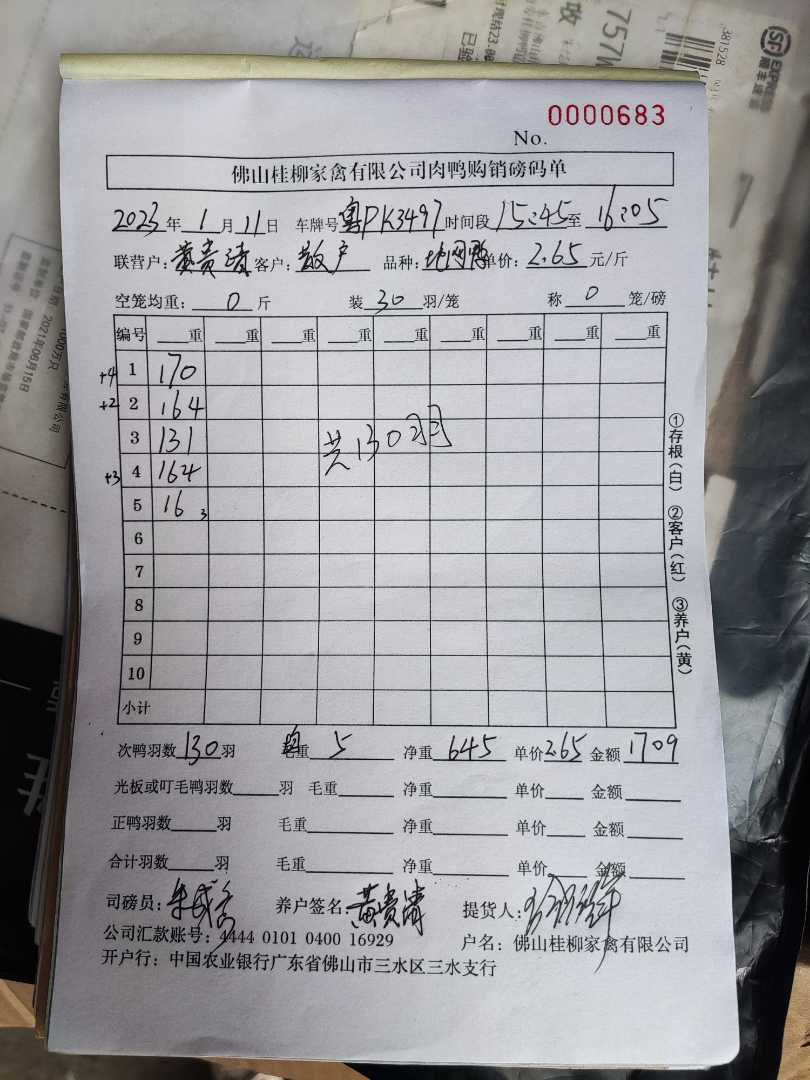 SF EXPRESS
381528
757W
0000683
No.
佛山桂柳家禽有限公司肉鸭购销磅码单
2023年1月11日 车牌号粤PK3497时间段15:45至16:05
联营户:黄贵清客户:散户 品种: 单价:2.65元/斤
空笼均重:0斤 装30羽/笼 称0笼/磅
编号 重 重 重 重 重 重 重 重 重
+4 1 170
+2 2 164
3 131 共130羽
+3 4 164
5 16 3
6
7
8
9
10
小计
①存根(白) ②客户(红) ③养户(黄)
次鸭羽数130羽 均重5 净重645 单价2.65 金额1709
光板或叮毛鸭羽数 羽 毛重 净重 单价 金额
正鸭羽数 羽 毛重 净重 单价 金额
合计羽数 羽 毛重 净重 单价 金额
司磅员: 养户签名:黄贵清 提货人:
公司汇款账号:4444 0101 0400 16929 户名:佛山桂柳家禽有限公司
开户行:中国农业银行广东省佛山市三水区三水支行